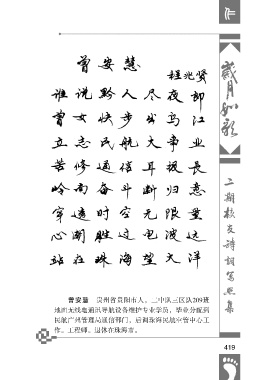 作
曾安慧
程兆贤
谁说黔人尽夜郎
曾女快步出乌江
立志民航大事业
苦修通信耳报长
岭南奋斗断归意
穿透时空无限量
心潮胜过电波远
站在珠海望大洋
曾安慧 贵州省贵阳市人。二中队三区队209班
地面无线电通讯导航设备维护专业学员,毕业分配到
民航广州管理局通信部门,后调珠海民航空管中心工
作。工程师。退休在珠海市。
岁月如歌
二期校友诗词写照集
419